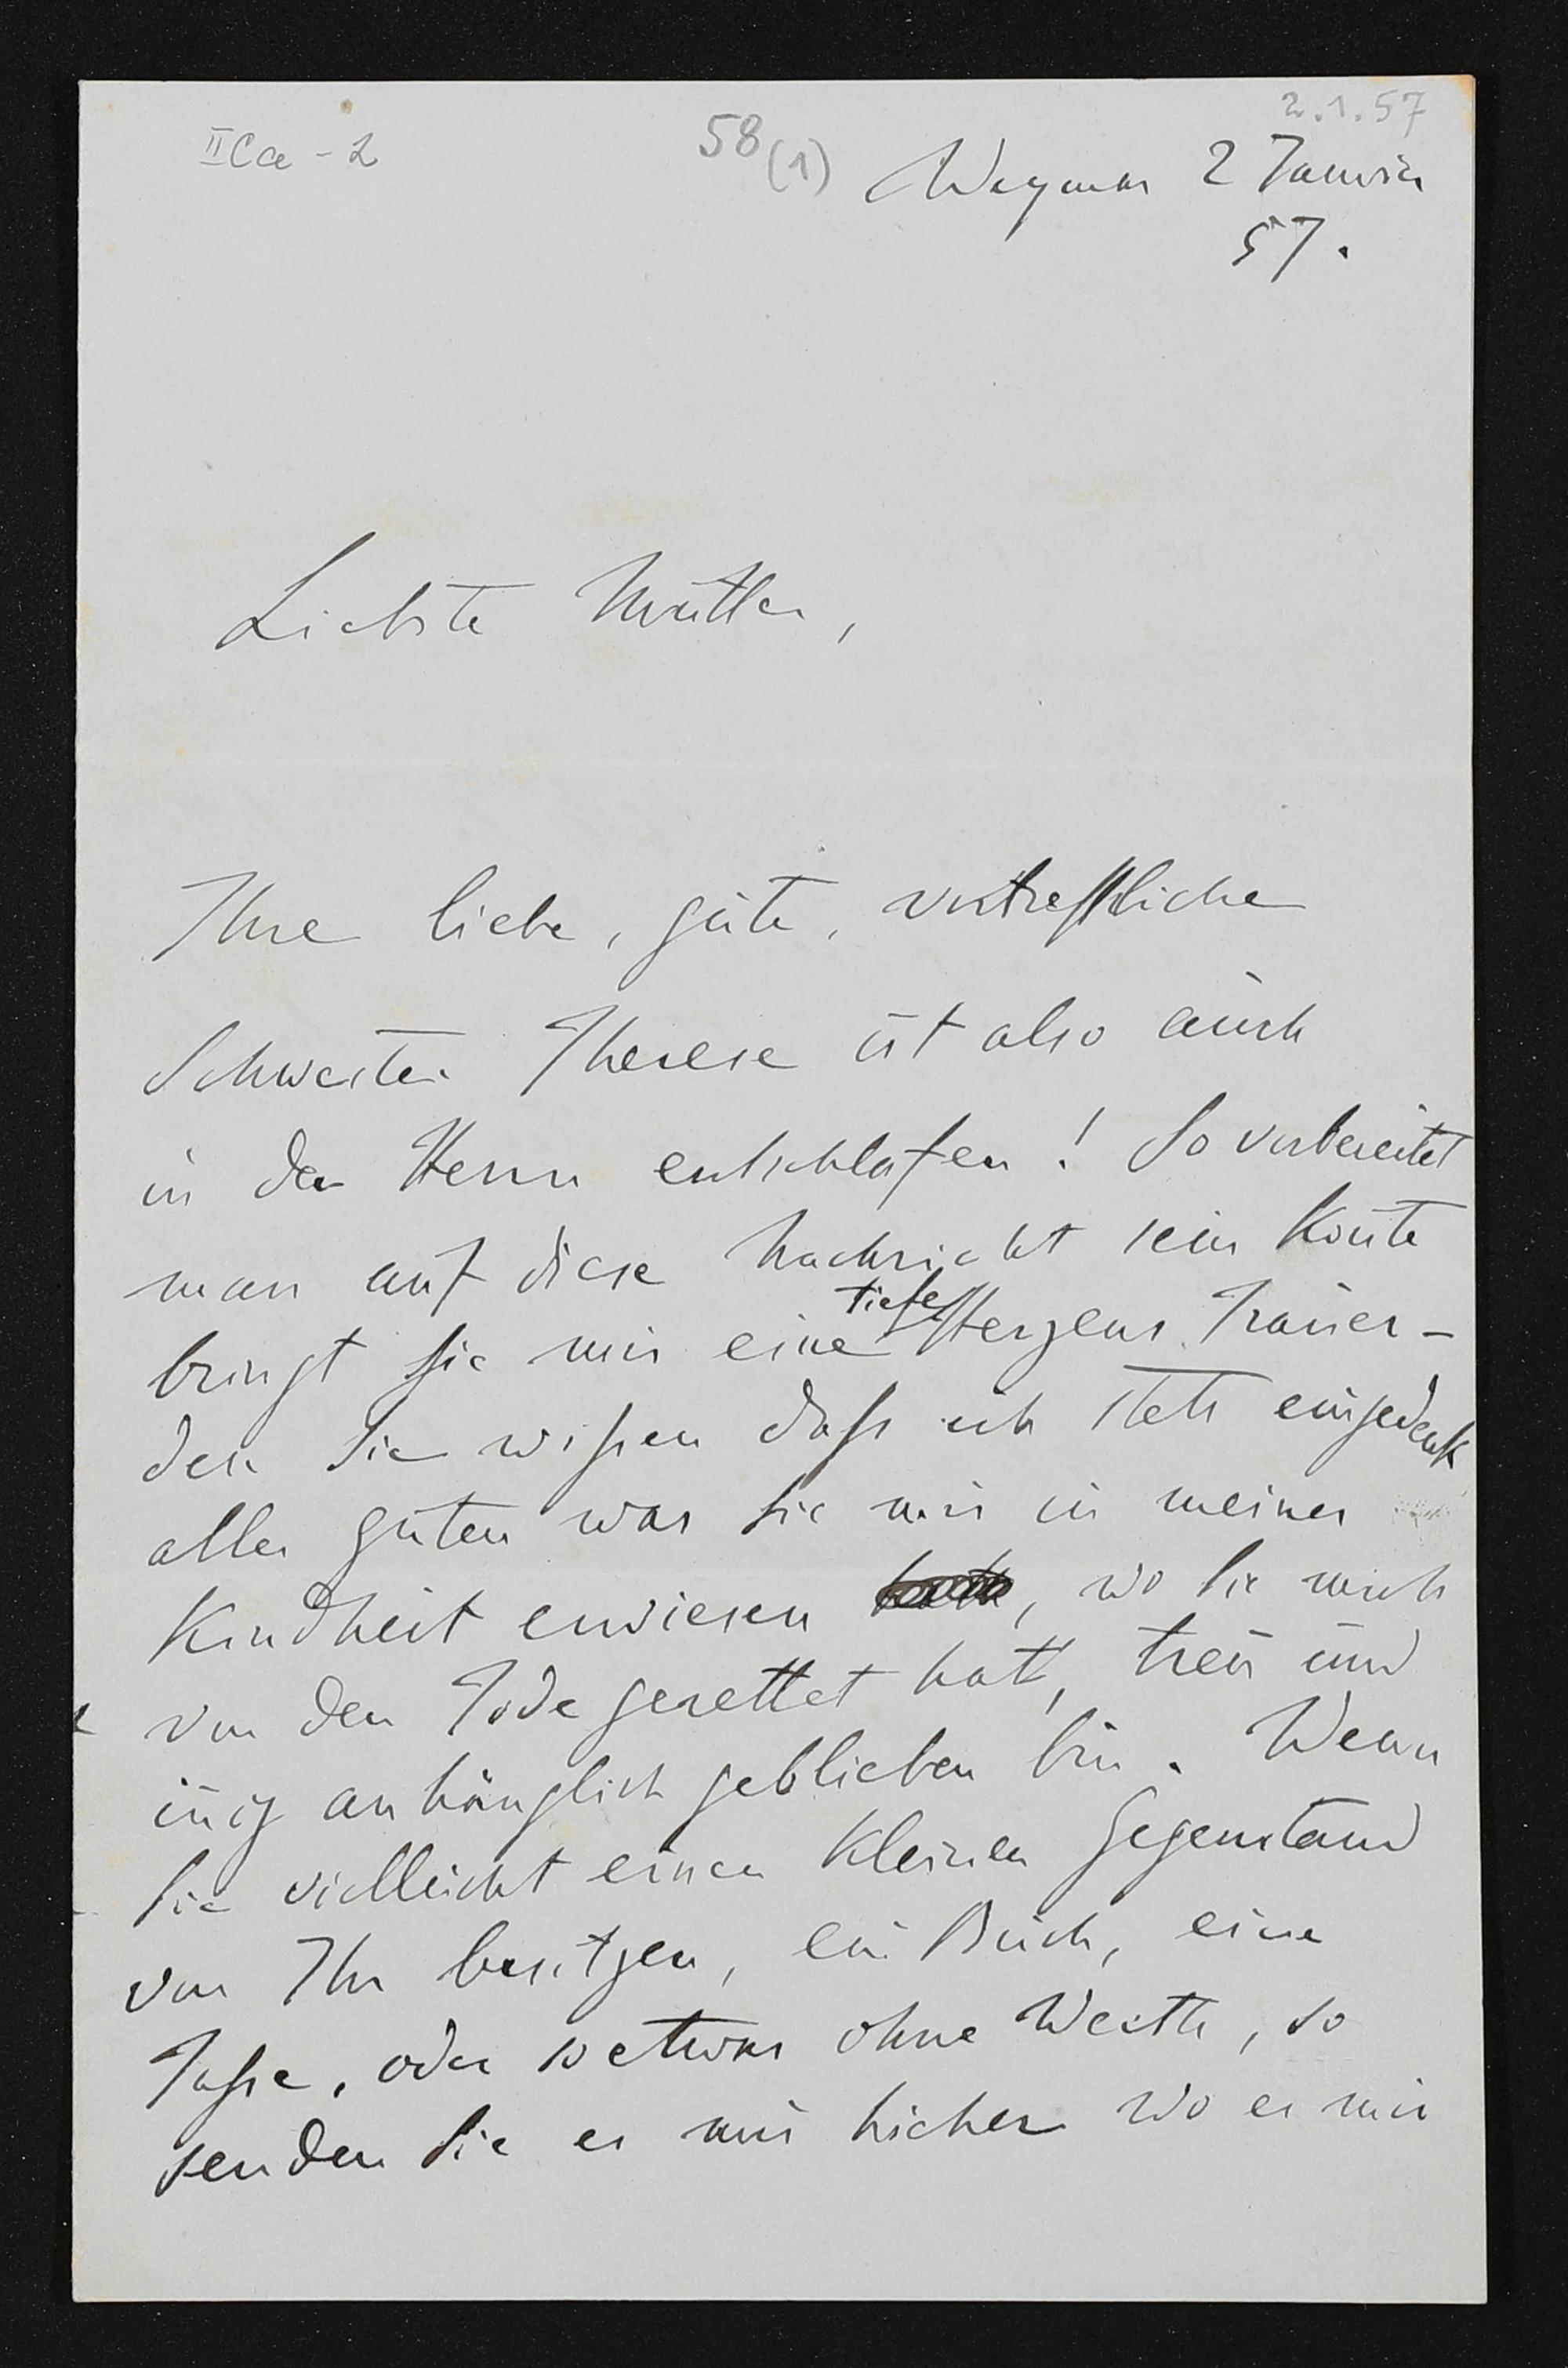 2.1.57
II Ca - 2
58 (1)
Weymar 2 Janvier
57.
Liebste Mutter,
Ihre liebe, gute, vortreffliche
Schwester Therese ist also auch
in den Herrn entschlafen! So vorbereitet
man auf diese Nachricht sein konte
bringt sie mir eine tiefe Herzens Trauer –
den Sie wissen dass ich stets eingedenk
alles guten was sie mir in meiner
Kindheit erwiesen, wo sie mich
von den Tode gerettet hat, treu und
inig anhänglich geblieben bin. Wenn
Sie vielleicht einen kleinen Gegenstand
von Ihr besitzen, ein Buch, eine
Tasse, oder so etwas ohne Werth, so
senden Sie es mir hieher wo es mir